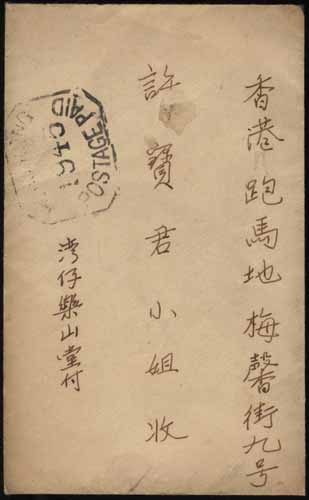 香港跑馬地梅馨街九号
許寶君小姐收
湾仔樂山堂付
POSTAGE PAID
1945